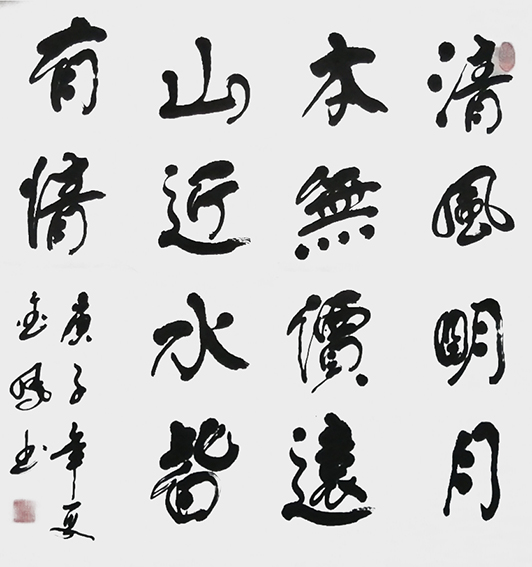 清風明月
本無價遠
山近水皆
有情
庚子年夏
金书